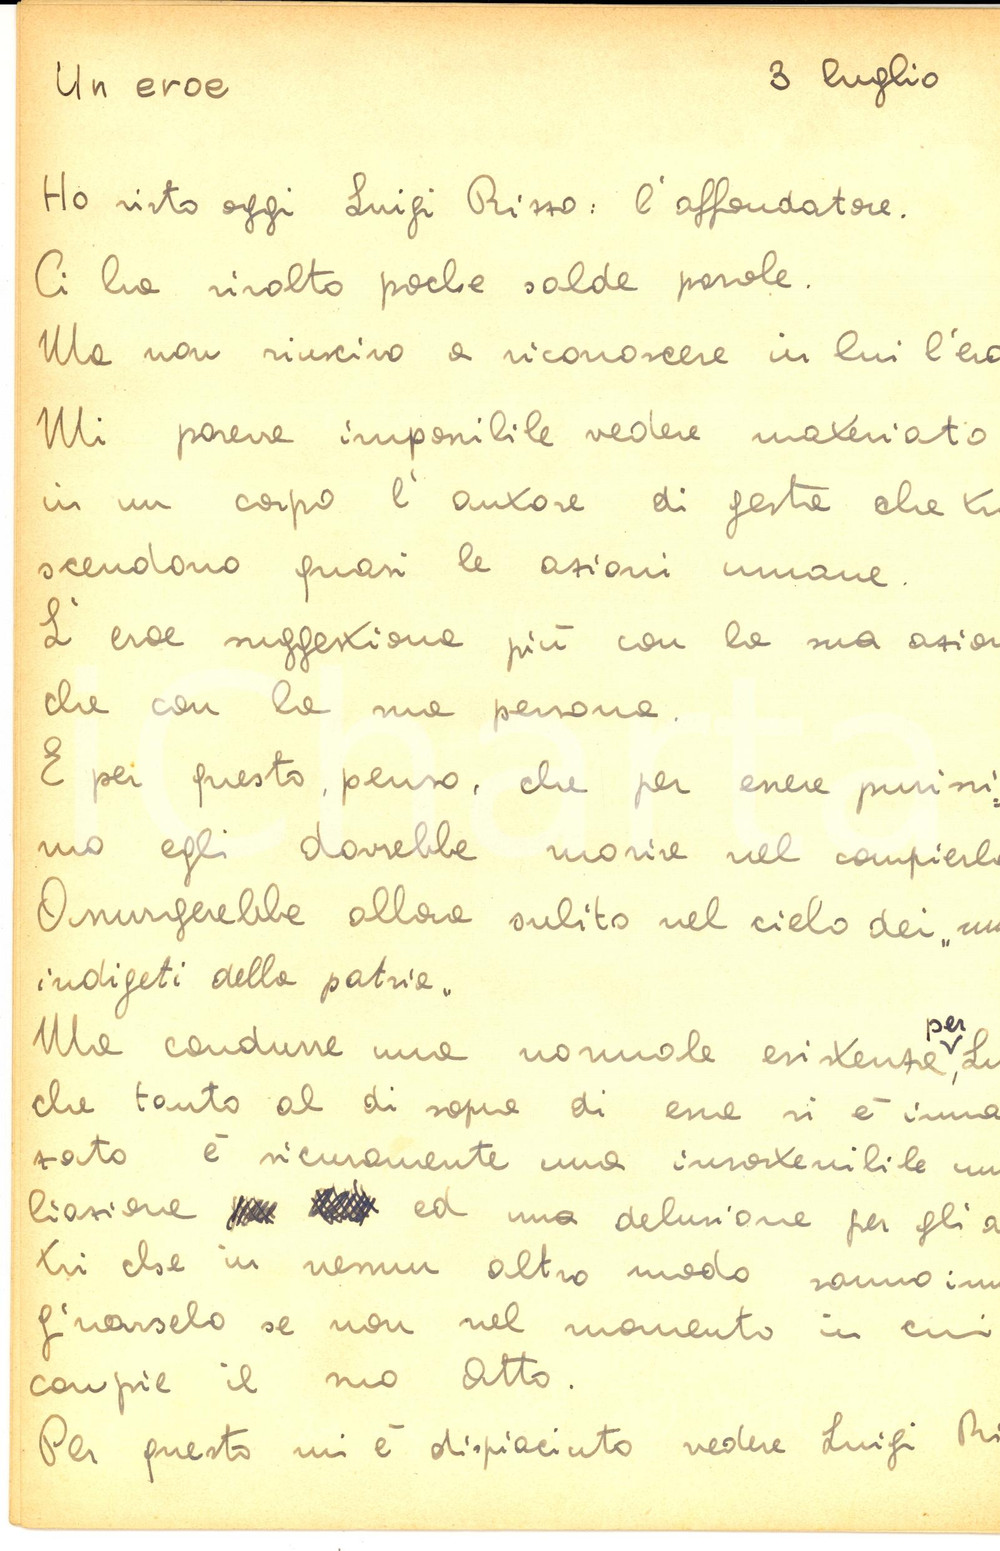 Un eroe 3 luglio
Ho visto oggi Luigi Rizzo: l'affondatore.
Ci ha rivolto poche salde parole.
Ma non riuscivo a riconoscere in lui l'ero
Mi pareva impossibile vedere materiato
in un corpo l'autore di gesta che tr
scendono quasi le azioni umane.
L'eroe suggestiona più con la sua azion
che con la sua persona.
E per questo, penso, che per essere purissi=
mo egli dovrebbe morire nel compierla
Assurgerebbe allora subito nel cielo dei „nu
indigeti della patria„
Ma condurre una normale esistenza, per Lu
che tanto al di sopra di essa si è inna
zato è sicuramente una insostenibile um
liazione ed una delusione per gli a
tri che in nessun altro modo sanno imm
ginarselo se non nel momento in cui
compie il suo Atto.
Per questo mi è dispiaciuto vedere Luigi Ri
iCharta